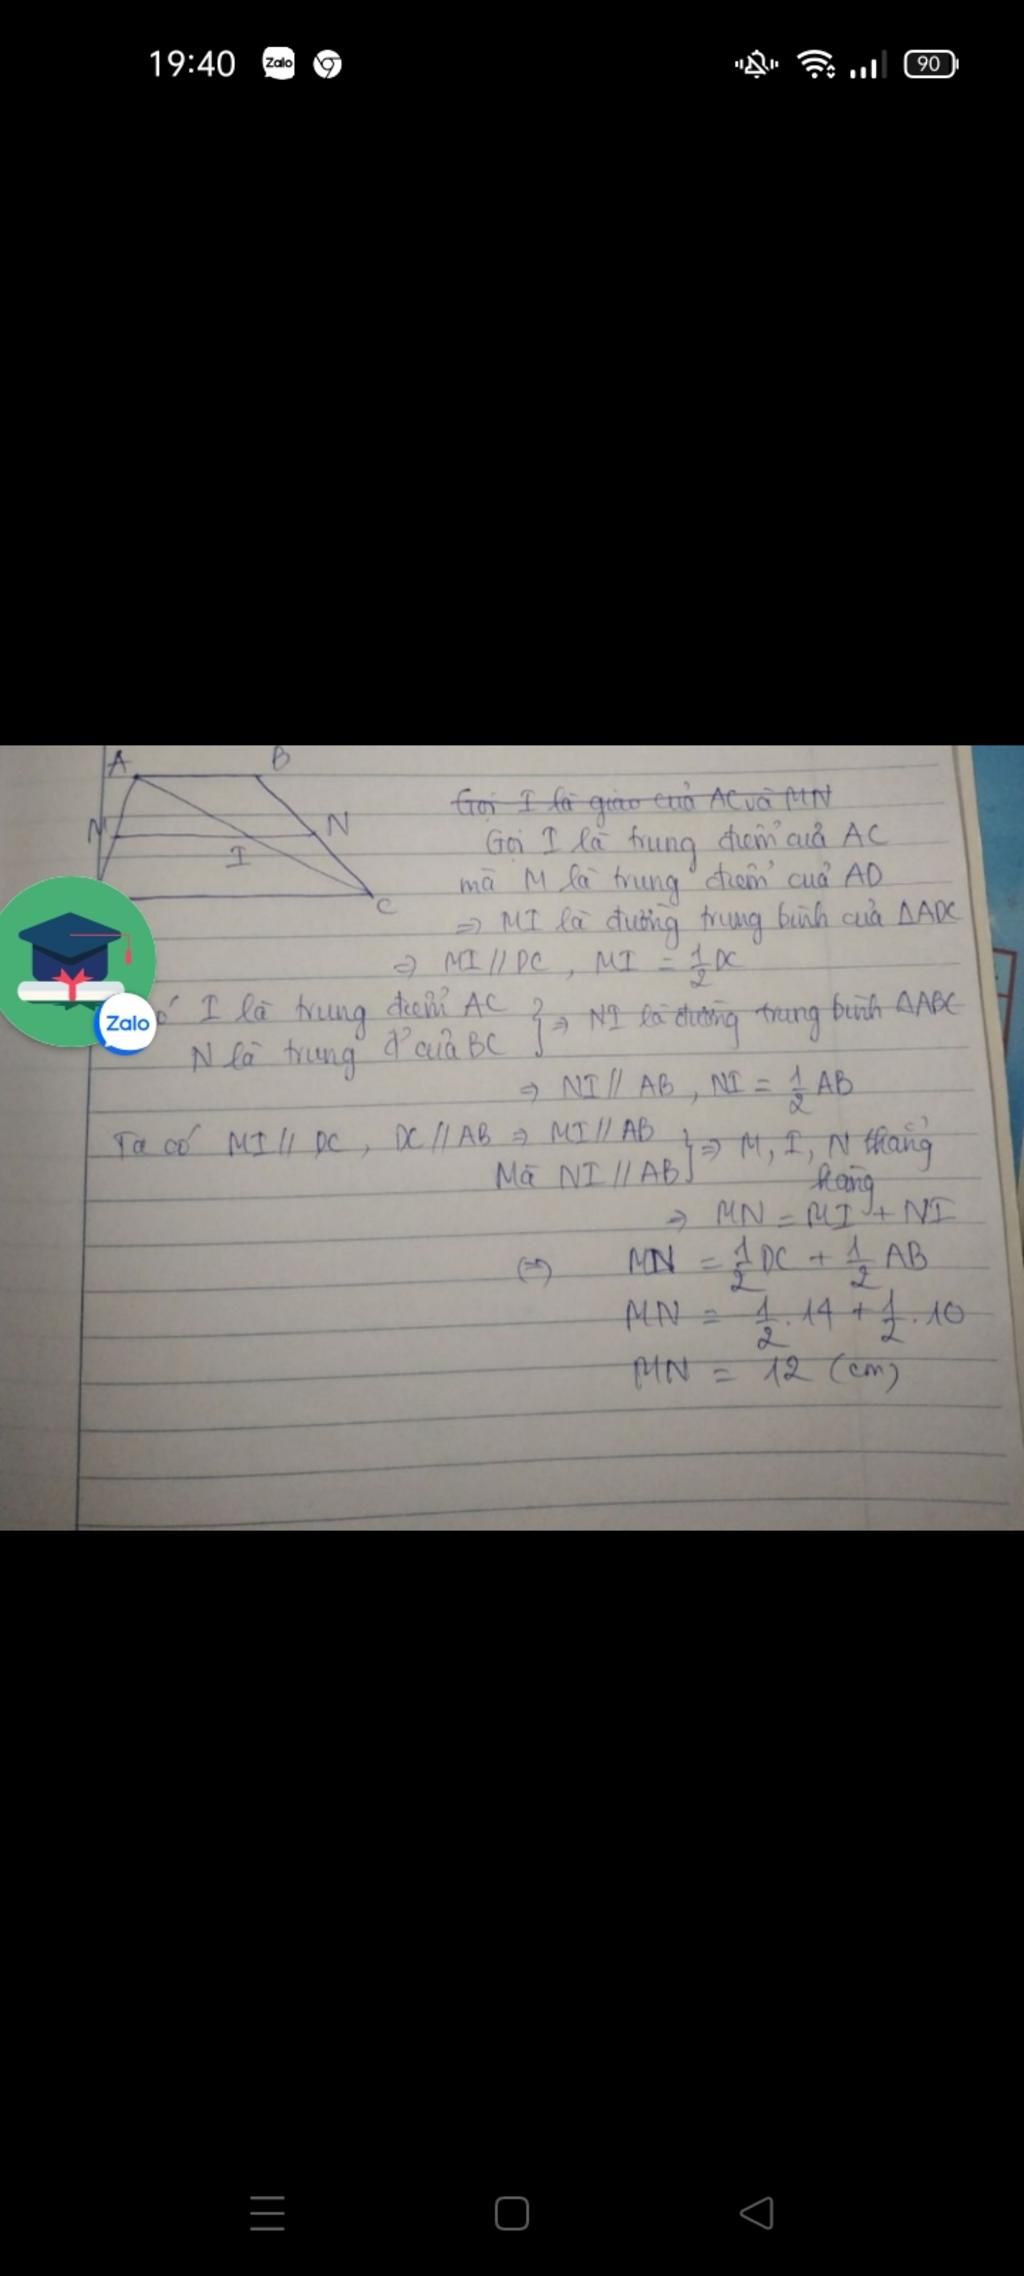 19:40 Zalo 90
A B
M N
I
C
Gọi I là giao của AC và MN
Gọi I là trung điểm của AC
mà M là trung điểm của AD
⇒ MI là đường trung bình của ΔADC
⇒ MI // DC, MI = 1/2 DC
I là trung điểm AC } ⇒ NI là đường trung bình ΔABC
N là trung đ' của BC
Zalo
⇒ NI // AB, NI = 1/2 AB
Ta có MI // DC, DC // AB ⇒ MI // AB } ⇒ M, I, N thẳng
Mà NI // AB hàng
⇒ MN = MI + NI
(⇒) MN = 1/2 DC + 1/2 AB
MN = 1/2 . 14 + 1/2 . 10
MN = 12 (cm)